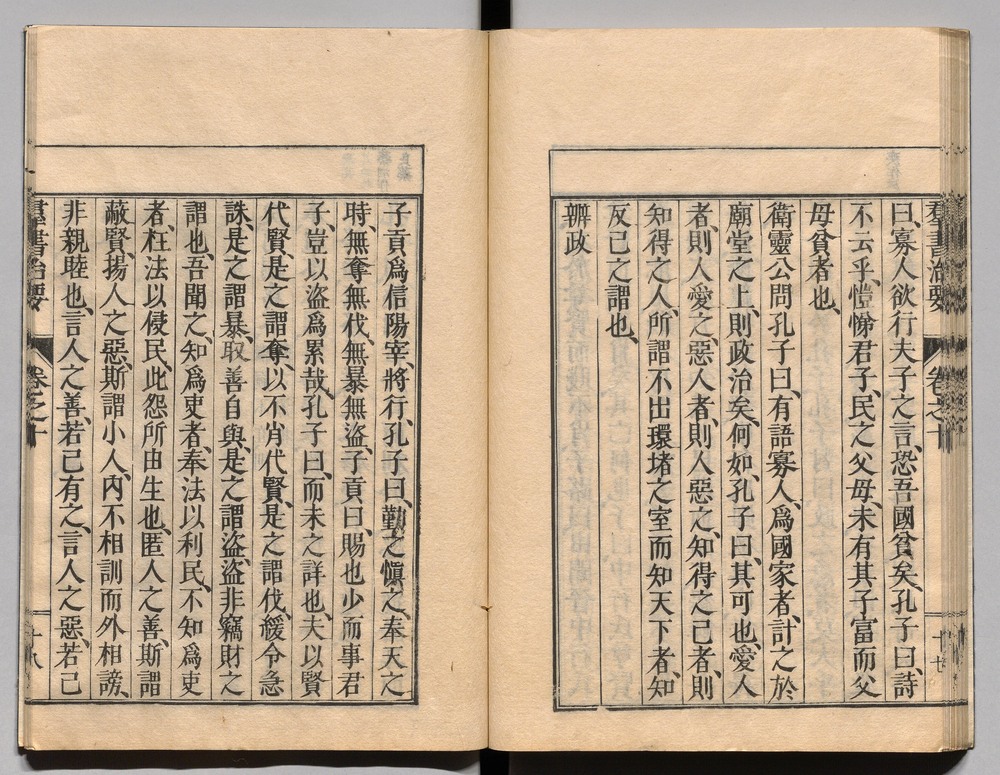 羣書治要 卷之十 十七
曰、寡人欲行夫子之言、恐吾國貧矣、孔子曰、詩
不云乎、愷悌君子、民之父母、未有其子富而父
母貧者也、
衛靈公問孔子曰、有語寡人爲國家者、計之於
廟堂之上、則政治矣、何如、孔子曰、其可也、愛人
者、則人愛之、惡人者、則人惡之、知得之己者、則
知得之人、所謂不出環堵之室而知天下者、知
反己之謂也、
辨政
子貢爲信陽宰、將行、孔子曰、勤之愼之、奉天之
時、無奪無伐、無暴無盜、子貢曰、賜也少而事君
子、豈以盜爲累哉、孔子曰、而未之詳也、夫以賢
代賢、是之謂奪、以不肖代賢、是之謂伐、緩令急
誅、是之謂暴、取善自與、是之謂盜、盜非竊財之
謂也、吾聞之、知爲吏者、奉法以利民、不知爲吏
者、枉法以侵民、此怨所由生也、匿人之善、斯謂
蔽賢、揚人之惡、斯謂小人、內不相訓而外相謗、
非親睦也、言人之善、若己有之、言人之惡、若己
羣書治要 卷之十 十八